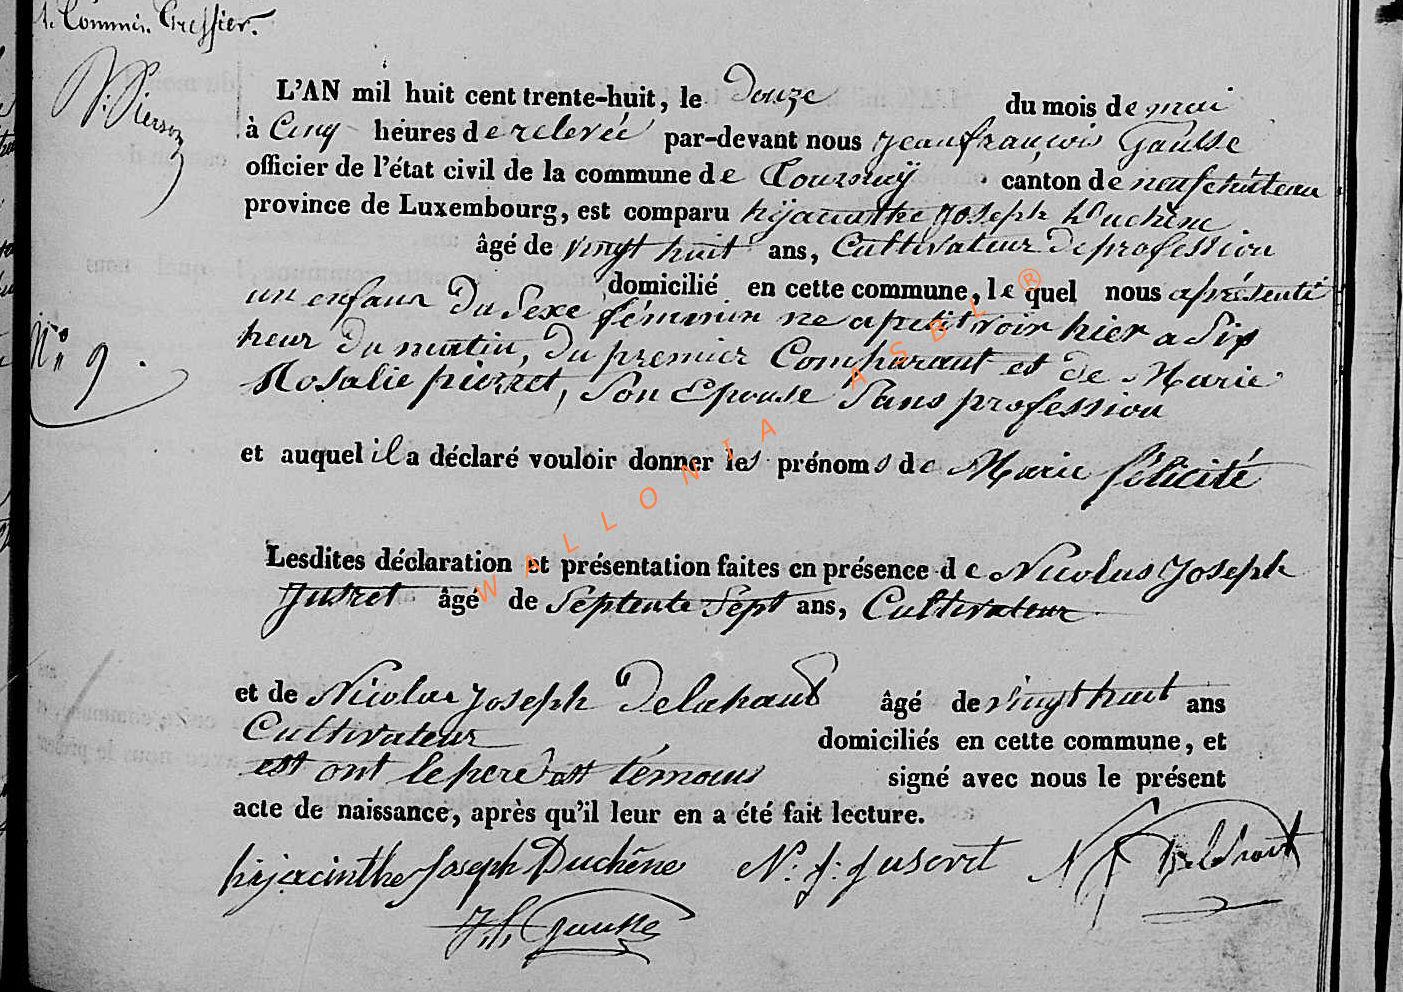 1. Commis. Greffier.
Pierson
N° 9.
L'AN mil huit cent trente-huit, le douze du mois de mai
à Cinq heures de relevée par-devant nous jean françois Gausse
officier de l'état civil de la commune de Tournay canton de neufchâteau
province de Luxembourg, est comparu hijacinthe joseph Duchêne
âgé de vingt huit ans, Cultivateur de profession
domicilié en cette commune, le quel nous a présenté
un enfant du Sexe féminin né a petitvoir hier a Six
heur du matin, du premier Comparant et de Marie
Rosalie pierret, Son Epouse Sans profession
et auquel il a déclaré vouloir donner les prénoms de Marie félicité
Lesdites déclaration et présentation faites en présence de Nicolas Joseph
Jusret âgé de Septente Sept ans, Cultivateur
et de Nicolas joseph Delahaut âgé de vingt huit ans
Cultivateur domiciliés en cette commune, et
ont le pere et témoins signé avec nous le présent
acte de naissance, après qu'il leur en a été fait lecture.
hijacinthe Joseph Duchêne N. j. juseret N J Delahaut
J. f. Gausse
WALLONIA ASBL ®